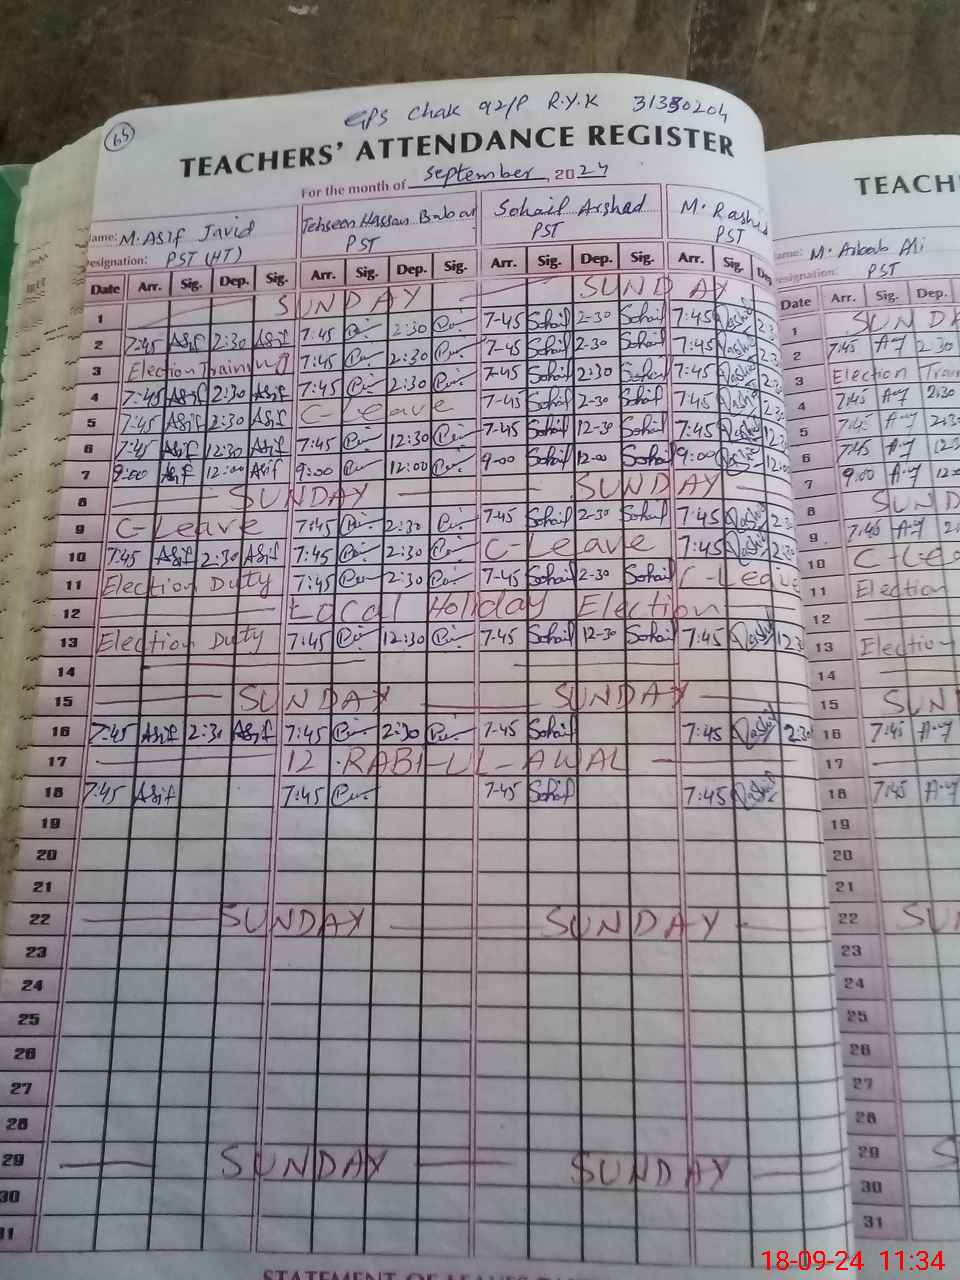 65
GPS Chak 92/P R.Y.K 31330204
TEACHERS' ATTENDANCE REGISTER
For the month of September, 2024
Name: M. Asif Javid Tehseen Hassan Babar Sohaif Arshad M. Rashid
Designation: PST (HT) PST PST PST
Date Arr. Sig. Dep. Sig. Arr. Sig. Dep. Sig. Arr. Sig. Dep. Sig. Arr. Sig. De
1 SUNDAY SUNDAY
2 7:45 Asif 2:30 Asif 7:45 2:30 7-45 Sohaif 2-30 Sohaif 7:45 Rashid 2:3
3 Election Training 7:45 2:30 7-45 Sohaif 2-30 Sohaif 7:45 Rashid 2:3
4 7:45 Asif 2:30 Asif 7:45 2:30 7-45 Sohaif 2:30 Sohaif 7:45 Rashid 2:3
5 7:45 Asif 2:30 Asif C-Leave 7-45 Sohaif 2-30 Sohaif 7:45 Rashid 2:3
6 7:45 Asif 12:30 Asif 7:45 12:30 7-45 Sohaif 12-30 Sohaif 7:45 Rashid 12:3
7 9:00 Asif 12:00 Asif 9:00 12:00 9-00 Sohaif 12-00 Sohaif 9:00 Rashid 12:00
8 SUNDAY SUNDAY
9 C-Leave 7:45 2:30 7-45 Sohaif 2-30 Sohaif 7:45 Rashid 2:3
10 7:45 Asif 2:30 Asif 7:45 2:30 C-Leave 7:45 Rashid 2:30
11 Election Duty 7:45 2:30 7-45 Sohaif 2-30 Sohaif C-Leave
12 Local Holiday Election
13 Election Duty 7:45 12:30 7-45 Sohaif 12-30 Sohaif 7:45 Rashid 12:3
14
15 SUNDAY SUNDAY
16 7:45 Asif 2:30 Asif 7:45 2:30 7-45 Sohaif 7:45 Rashid 2:30
17 12 RABI-UL-AWAL
18 7:45 Asif 7:45 7-45 Sohaif 7:45 Rashid
19
20
21
22 SUNDAY SUNDAY
23
24
25
26
27
28
29 SUNDAY SUNDAY
30
31
STATEMENT OF LEAVES
TEACH
Name: M. Arbab Ali
Designation: PST
Date Arr. Sig. Dep.
1 SUNDA
2 7:45 A-7 2:30
3 Election Train
4 7:45 A-7 2:30
5 7:45 A-7 2:30
6 7:45 A-7 12:3
7 9:00 A-7 12:0
8 SUND
9 7:45 A-7 2:30
10 C-Lea
11 Election
12
13 Election
14
15 SUN
16 7:45 A-7
17
18 7:45 A-7
19
20
21
22 SU
23
24
25
26
27
28
29 S
30
31
18-09-24 11:34